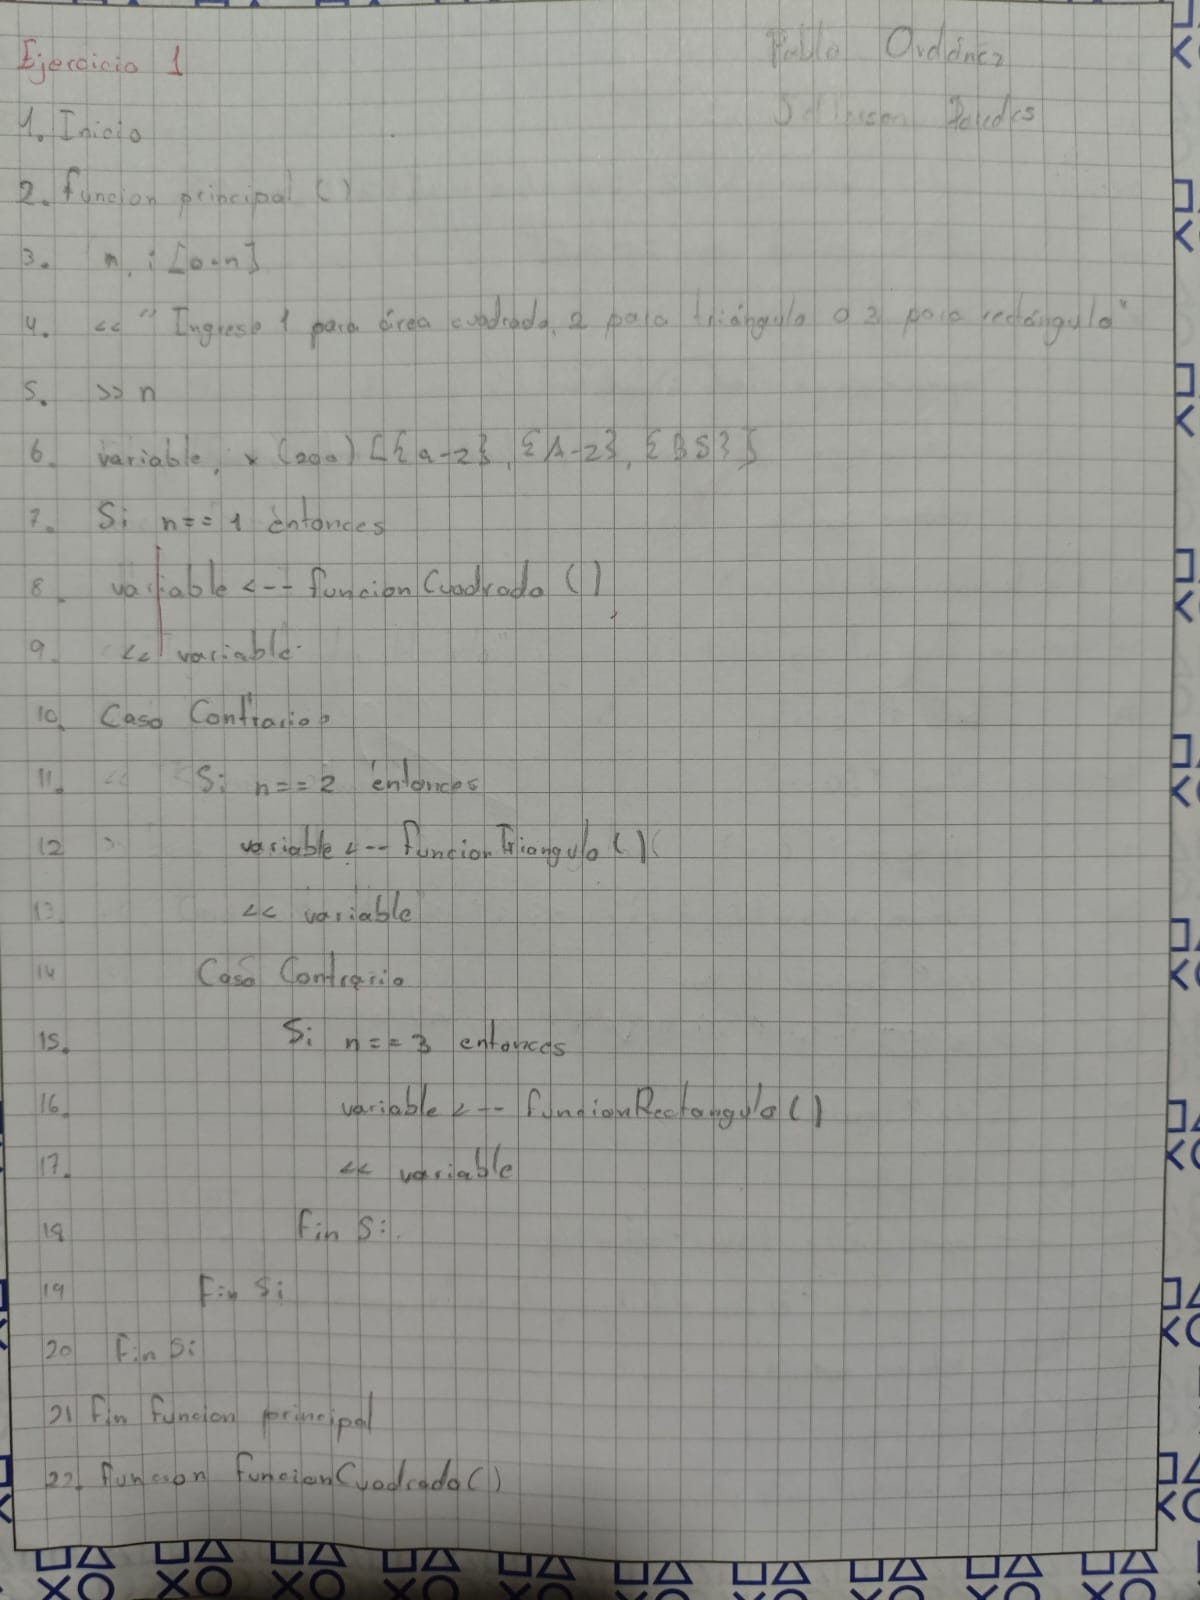 Ejercicio 1
Pablo Ordónez
Paredes
1. Inicio
2. funcion principal ()
3. n, i [0-n]
4. << "Ingrese 1 para área cuadrado, 2 para triángulo o 3 para rectángulo"
5. >> n
6. variable, x (200) [{a-z}, {A-Z}, {BS}]
7. Si n==1 entonces
8. variable <-- funcionCuadrado ()
9. << variable
10. Caso Contrario
11. Si n==2 entonces
12 variable <-- funcionTriangulo ()
13 << variable
14 Caso Contrario
15. Si n==3 entonces
16. variable <-- funcionRectangulo ()
17. << variable
18 Fin Si
19 Fin Si
20 Fin Si
21 Fin funcion principal
22. funcion funcionCuadrado ()